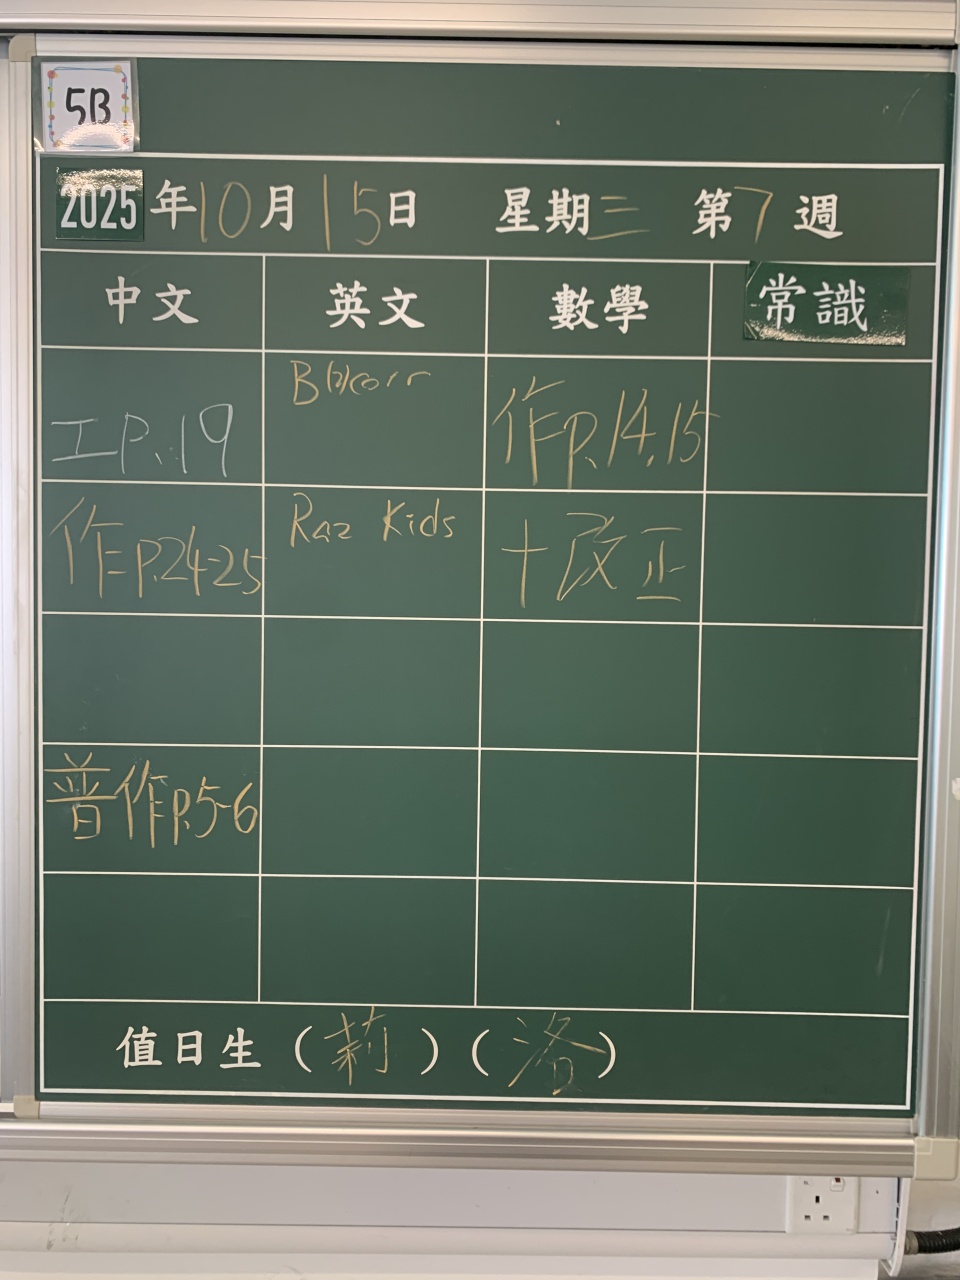 5B
2025年10月15日 星期三 第7週
中文 英文 數學 常識
工P.19 B(2)corr 作P.14,15
作P.24-25 Raz Kids 十改正
普作P.5-6
值日生（莉）（洛）